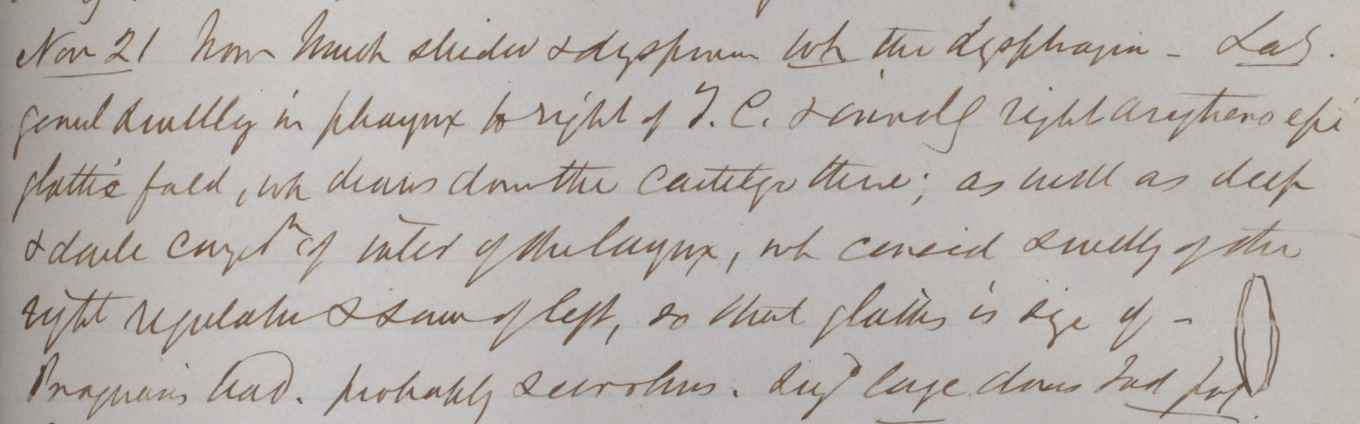 Nov 21 Now much stridor & dyspnoea wh the dysphagia - Lar.
genl swelly in pharynx to right of T. C. & involvg right aryteno epi
glottic fold, wh draws down the cartilge there; as well as deep
& dark congestn of inter of the larynx, wh consid swellg of the
right & some of left, so that glottis is size of -
Prognosis bad. probably scirrhus. large doses Iod pot